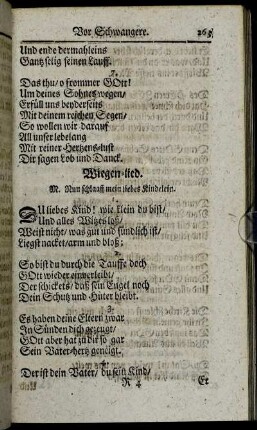 Vor Schwangere. 263
Und ende dermahleins
Gantz selig seinen Lauff.
7.
Das thu/ o frommer GOtt!
Um deines Sohnes wegen/
Erfüll uns beyderseits
Mit deinem reichen Segen/
So wollen wir darauf
All unser lebelang
Mit reiner Hertzens-lust
Dir sagen Lob und Danck.
Wiegen-lied.
M. Nun schlaaff mein liebes Kindelein.
1.
DU liebes Kind! wie klein du bist/
Und alles Witzes loß/
Weist nicht/ was gut und sündlich ist/
Liegst nacket/arm und bloß;
2.
So bist du durch die Tauffe doch
GOtt wieder einverleibt/
Der schickets/ daß sein Engel noch
Dein Schutz und Hüter bleibt.
3.
Es haben deine Eltern zwar
In Sünden dich gezeugt/
GOtt aber hat zu dir so gar
Sein Vater-hertz geneigt.
4.
Der ist dein Vater/ du sein Kind/
R 4 Er